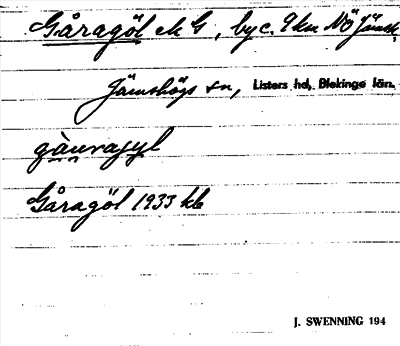 Gåragöl ek G, by c. 9 km NÖ Jämsh,
Jämshögs sn, Listers hd, Blekinge län.
gåuragyl
Gåragöl 1933 kb
J. SWENNING 194